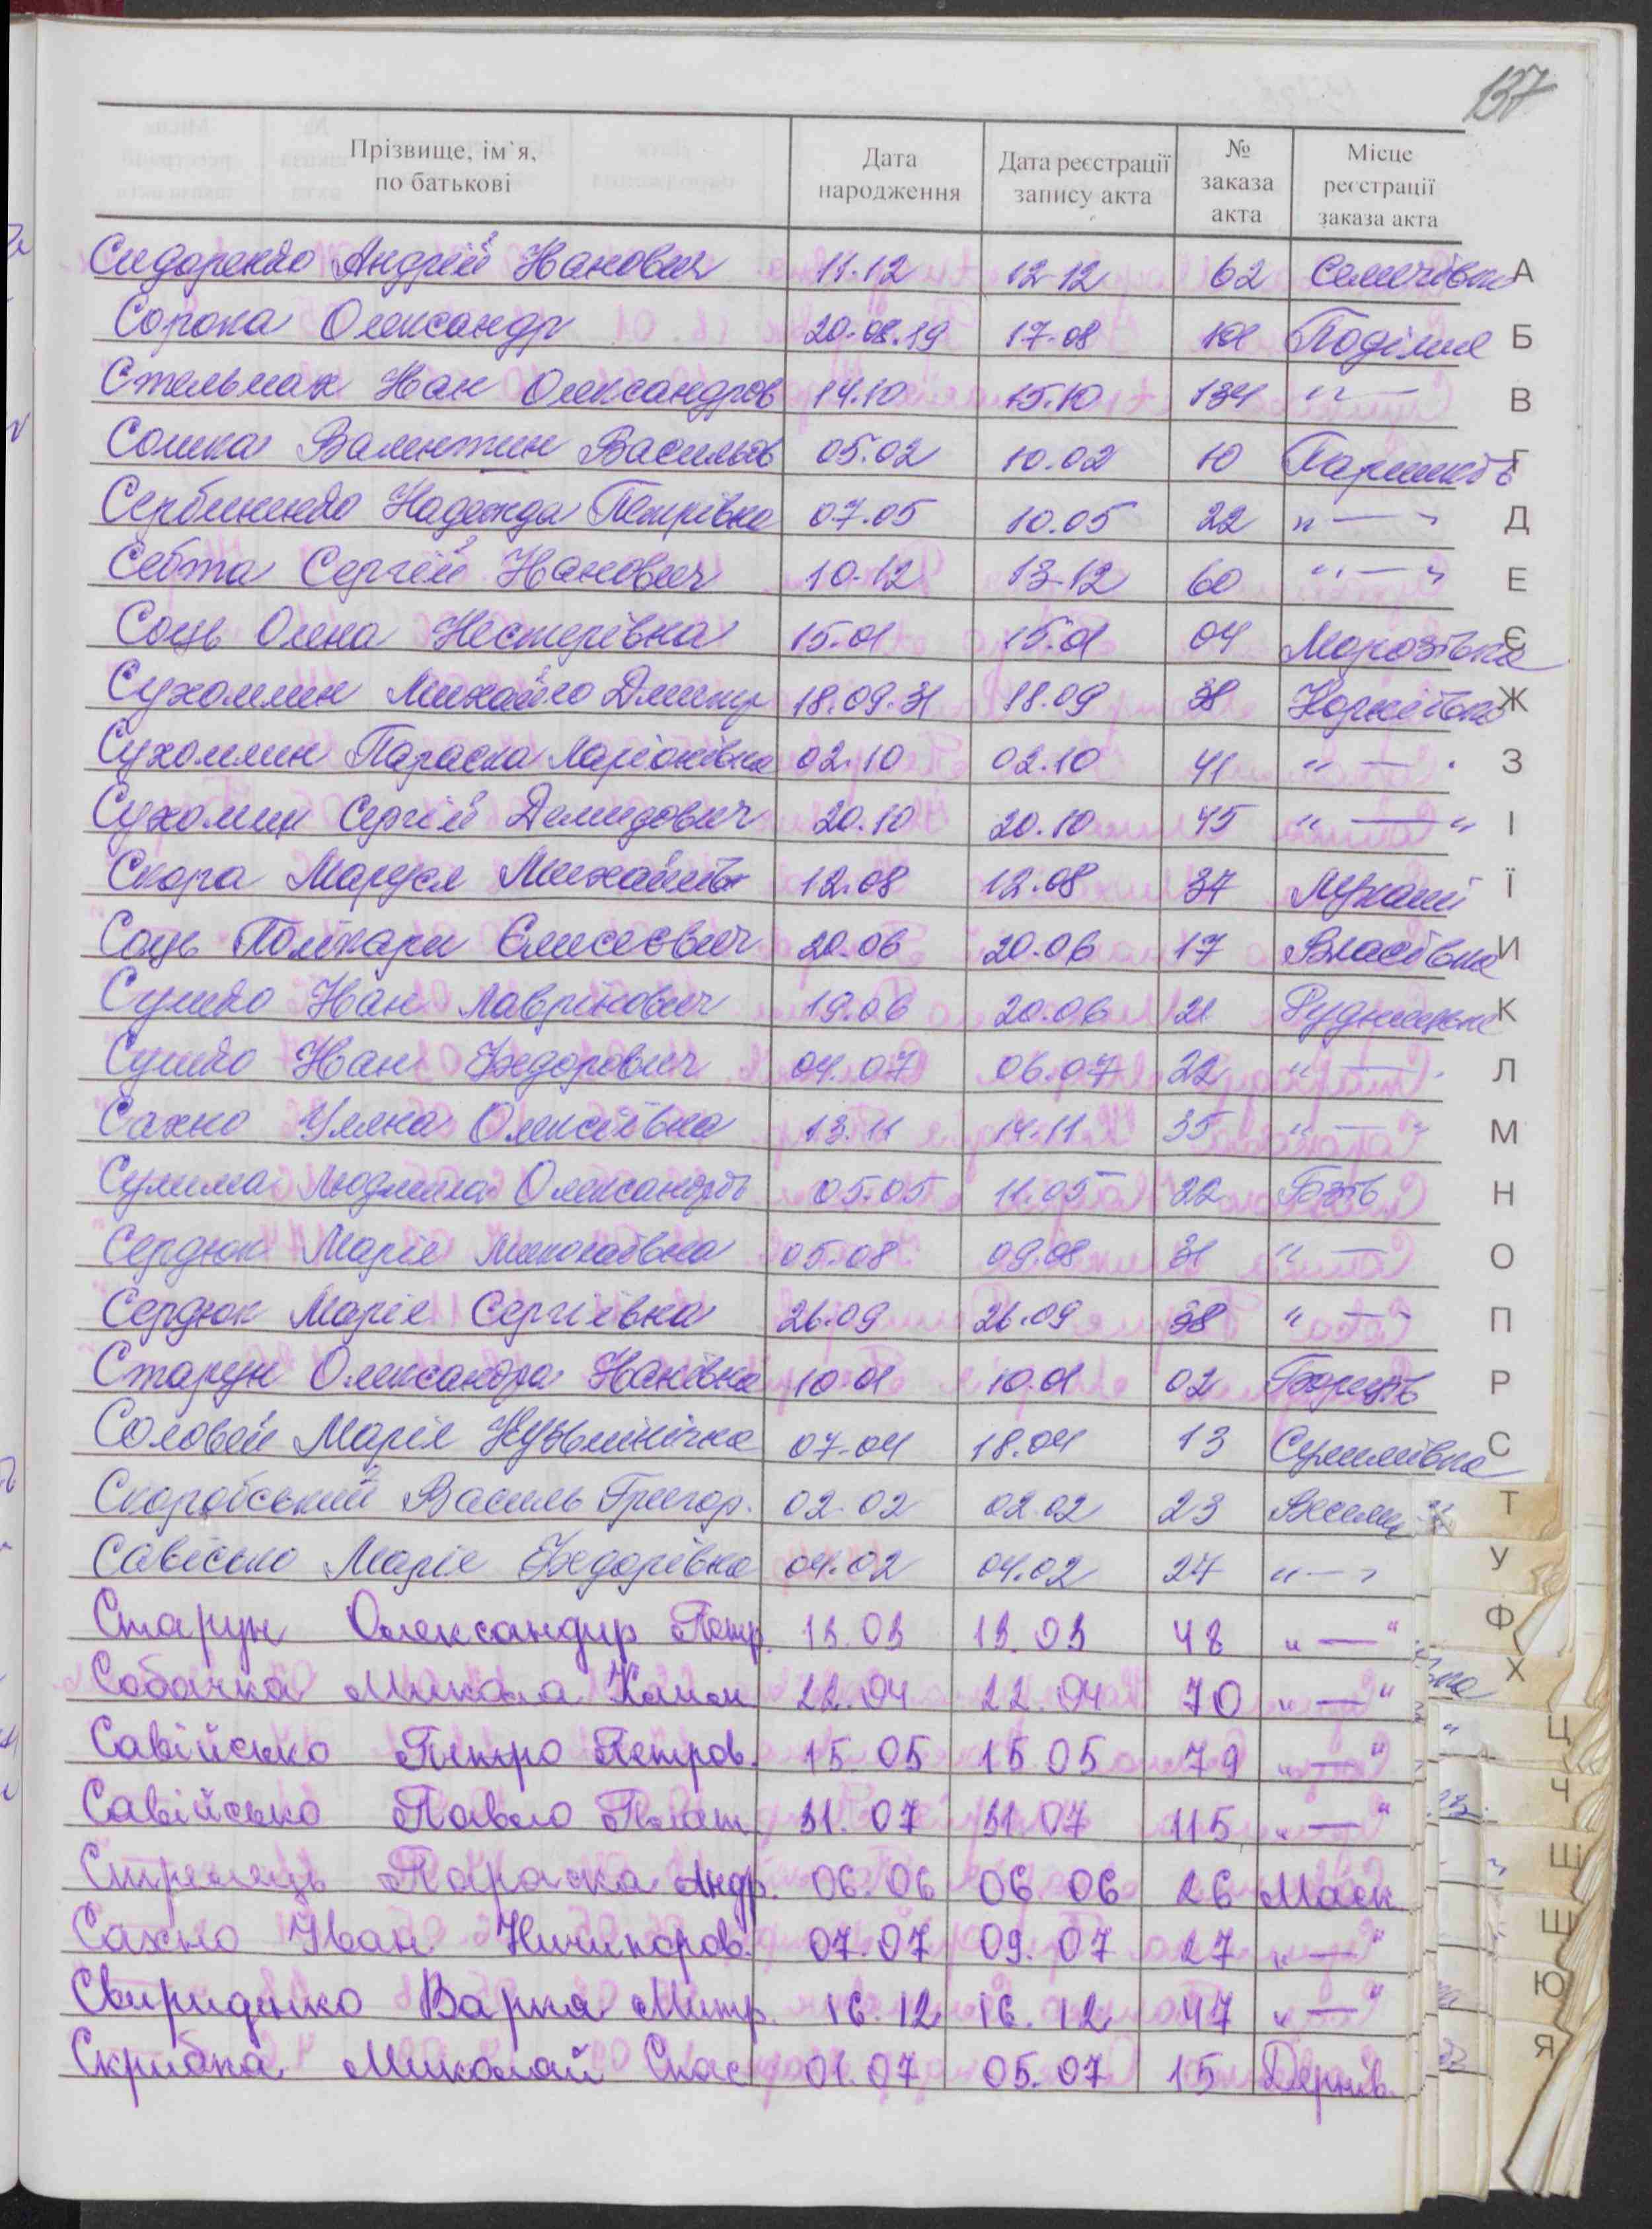 137
Прізвище, ім`я, по батькові | Дата народження | Дата реєстрації запису акта | № заказа акта | Місце реєстрації заказа акта
Сидоренко Андрій Іванович 11.12 12-12 62 Семенівка А
Сорока Олександр 20.08.19 17-08 101 Поділля Б
Стельмах Іван Олександров 14.10 15.10 134 "— В
Сошка Валентин Васильов 05.02 10.02 10 Паришків Г
Сербиненко Надежда Петрівна 07.05 10.05 22 "—" Д
Себта Сергій Іванович 10-12 13-12 60 "—" Е
Соць Олена Нестерівна 15.01 15.01 04 Морозівка Є
Сухомлин Михайло Дмитр 18.09.31 18.09 38 Корніївка Ж
Сухомлин Параска Ларіонівна 02.10 02.10 41 "—" З
Сухомлин Сергій Демидович 20.10 20.10 45 "—" І
Скора Маруся Михайлів 12.08 12.08 37 Лукаші Ї
Соць Полікарп Єлисеєвич 20.06 20.06 17 Власівка И
Сушко Іван Лаврінович 19.06 20.06 21 Рудницьке К
Сушко Іван Федорович 04.07 06.07 22 "—" Л
Сахно Уляна Олексіївна 13.11 14.11 35 "—" М
Сулима Людмила Олександрів 05.05 11.05 22 Гозів Н
Сердюк Марія Миколаївна 05.08 09.08 31 "— О
Сердюк Марія Сергіївна 26.09 26.09 38 "—" П
Старун Олександра Іванівна 10.01 10.01 02 Р
Соловей Марія Кузьмінічна 07-04 18.04 13 Сулимівка С
Скоробський Василь Григор. 02-02 02.02 23 Т
Савісько Марія Федорівна 04.02 04.02 27 "—" У
Старун Олександир Петр. 13.03 13.03 48 "—" Ф
Собачка Микола Кл 22.04 22.04 70 "—" Х
Савійсько Петро Петров. 15.05 15.05 79 "—" Ц
Савійсько Павло Плат 31.07 31.07 115 "—" Ч
Стрелець Параска Андр. 06.06 06 06 26 Маск Щ
Сахно Іван Ничипоров. 07.07 09.07 27 "—" Ш
Свириденко Варка Митр. 16.12 16.12 47 "—" Ю
Скрибка Миколай Спас 01.07 05.07 15 Дернів. Я